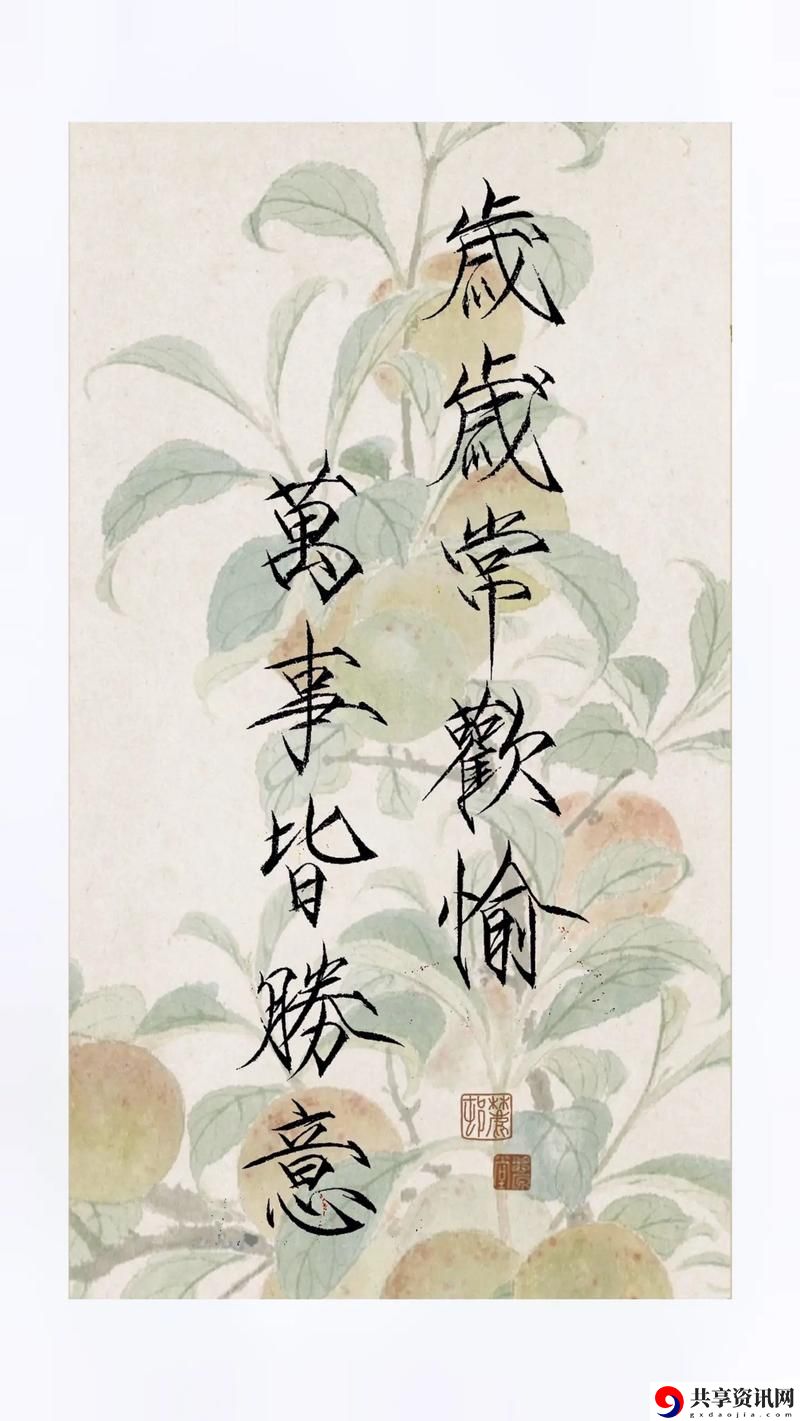 歲歲常歡愉
萬事皆勝意
共享资讯网
gxdaojia.com